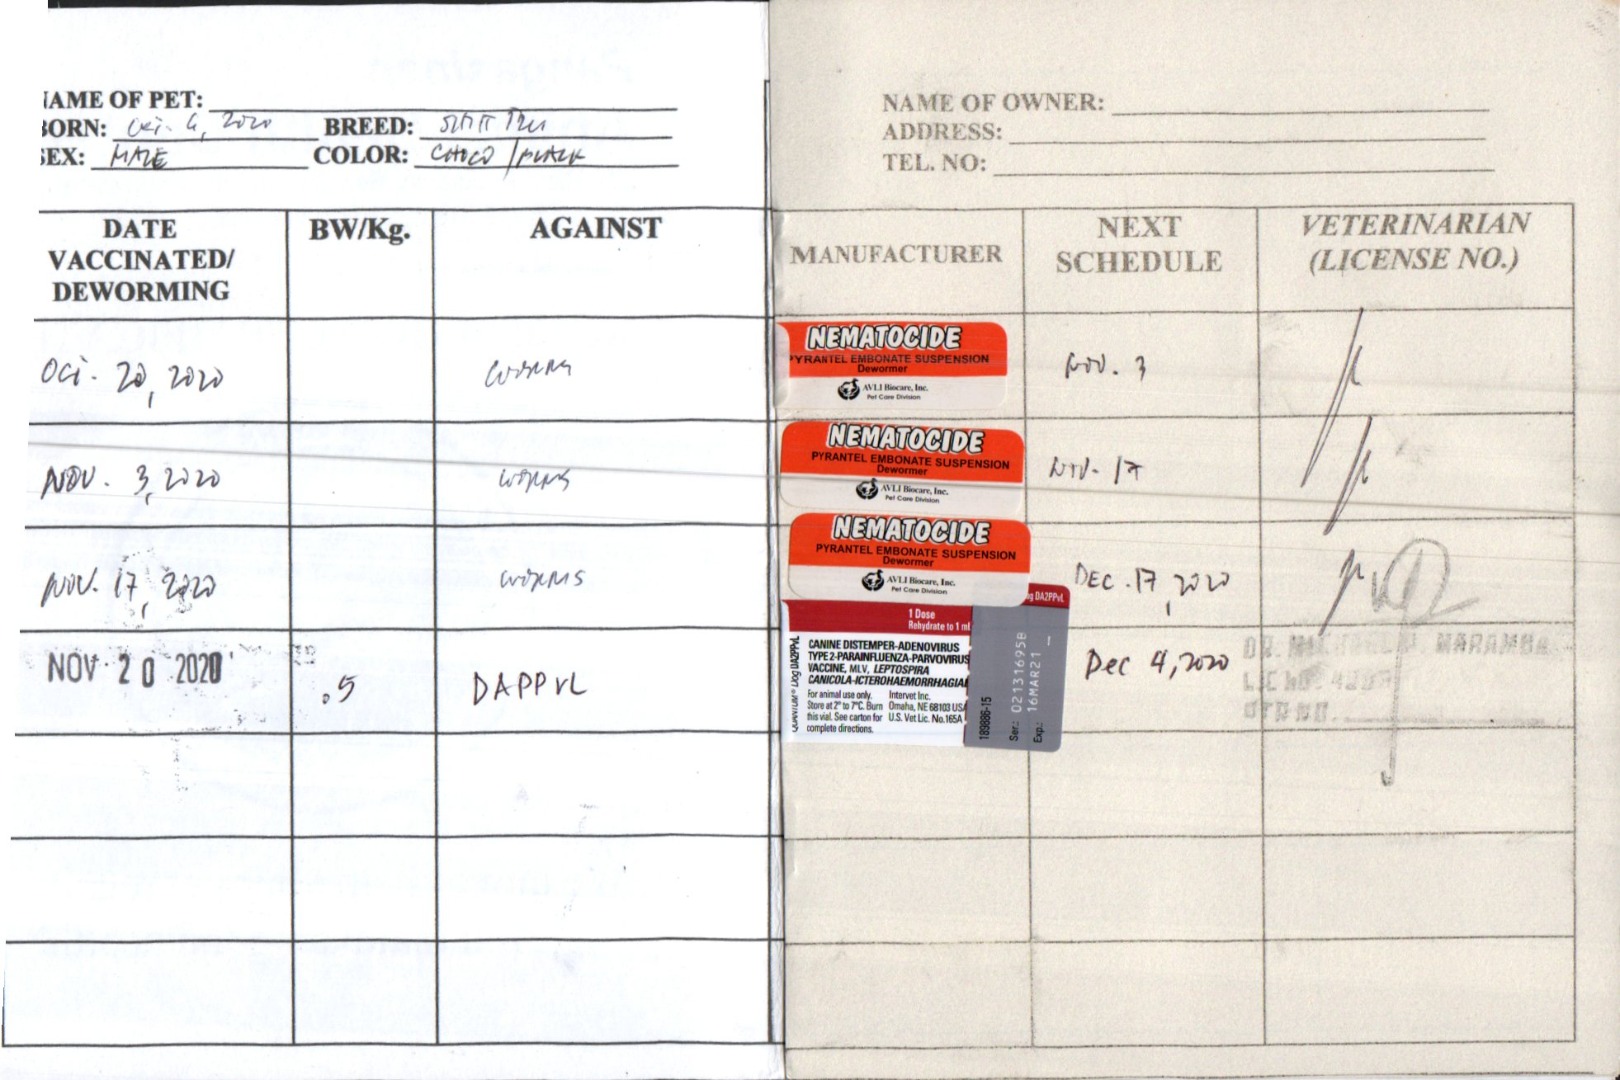 NAME OF PET:
BORN: Oct. 6, 2020 BREED: SHIH TZU
SEX: MALE COLOR: CHOCO / BLACK
NAME OF OWNER:
ADDRESS:
TEL. NO:
DATE VACCINATED/ DEWORMING
BW/Kg.
AGAINST
MANUFACTURER
NEXT SCHEDULE
VETERINARIAN (LICENSE NO.)
Oct. 20, 2020
worms
NEMATOCIDE
PYRANTEL EMBONATE SUSPENSION
Dewormer
AVLI Biocare, Inc.
Pet Care Division
Nov. 3
Nov. 3, 2020
worms
NEMATOCIDE
PYRANTEL EMBONATE SUSPENSION
Dewormer
AVLI Biocare, Inc.
Pet Care Division
Nov. 17
Nov. 17, 2020
worms
NEMATOCIDE
PYRANTEL EMBONATE SUSPENSION
Dewormer
AVLI Biocare, Inc.
Pet Care Division
DEC. 17, 2020
NOV 20 2020
.5
DAPPvL
1 Dose
Rehydrate to 1 ml
Dog DA2PPvL
CANINE DISTEMPER-ADENOVIRUS
TYPE 2-PARAINFLUENZA-PARVOVIRUS
VACCINE, MLV, LEPTOSPIRA
CANICOLA-ICTEROHAEMORRHAGIAE
For animal use only.
Store at 2° to 7°C. Burn
this vial. See carton for
complete directions.
Intervet Inc.
Omaha, NE 68103 USA
U.S. Vet Lic. No. 165A
DA2PPvL
189886-15
Ser.: 02131695B
Exp.: 16MAR21
Dec 4, 2020
DR. MARAMBA
LIC NO.
PTR NO.